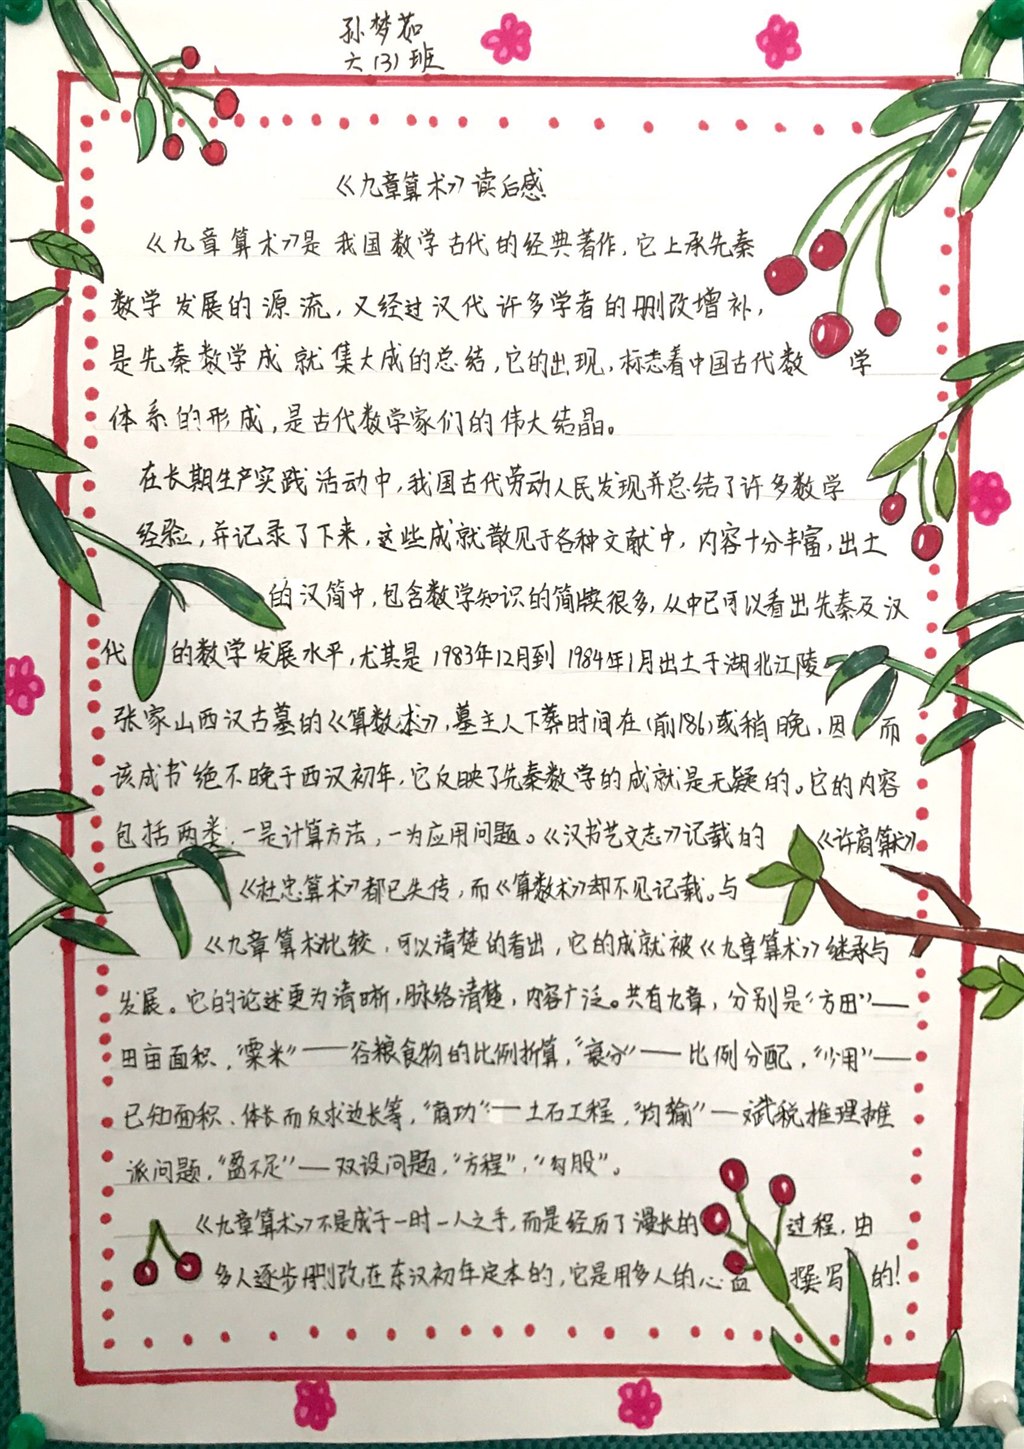 孙梦茹
六(3)班
《九章算术》读后感
《九章算术》是我国数学古代的经典著作,它上承先秦
数学发展的源流,又经过汉代许多学者的删改增补,
是先秦数学成就集大成的总结,它的出现,标志着中国古代数学
体系的形成,是古代数学家们的伟大结晶。
在长期生产实践活动中,我国古代劳动人民发现并总结了许多数学
经验,并记录了下来,这些成就散见于各种文献中,内容十分丰富,出土
的汉简中,包含数学知识的简牍很多,从中已可以看出先秦及汉
代的数学发展水平,尤其是1983年12月到1984年1月出土于湖北江陵
张家山西汉古墓的《算数术》,墓主人下葬时间在(前186)或稍晚,因而
该成书绝不晚于西汉初年,它反映了先秦数学的成就是无疑的。它的内容
包括两类,一是计算方法,一为应用问题。《汉书艺文志》记载的《许商算术》
《杜忠算术》都已失传,而《算数术》却不见记载。与
《九章算术比较,可以清楚的看出,它的成就被《九章算术》继承与
发展。它的论述更为清晰,脉络清楚,内容广泛。共有九章,分别是"方田"——
田亩面积,"粟米"——谷粮食物的比例折算,"衰分"——比例分配,"少用"——
已知面积、体长而反求边长等,"商功"——土石工程,"均输"—赋税推理摊
派问题,"盈不足"—双设问题,"方程","勾股"。
《九章算术》不是成于一时一人之手,而是经历了漫长的过程,由
多人逐步删改在东汉初年定本的,它是用多人的心血撰写的!